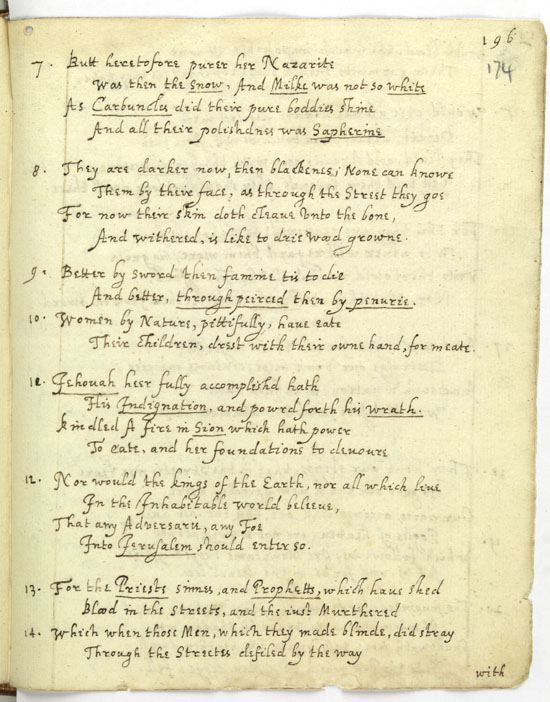 196
174
7. Butt heretofore purer her Nazarite
Was then the snow, And Milke was not so white
As Carbuncles did their pure boddies shine
And all their polishdnes was Sapherine
8. They are darker now, then blacknes; None can knowe
Them by their face, as through the Street they goe
For now their skin doth cleave Unto the bone,
And withered, is like to drie wood growne.
9. Better by sword then famine tis to die
And better, through peirced then by penurie.
10. Women by Nature, pittifully, have eate
Their Children, drest with their owne hand, for meate.
11. Jehouah heer fully accomplishd hath
His Indignation, and powrd forth his wrath.
kindled A fire in Sion which hath power
To eate, and her foundations to devoure
12. Nor would the kings of the Earth, nor all which live
In the Inhabitable world beleeve,
That any Adversarie, any Foe
Into Jerusalem should enter so.
13. For the Priests sinnes, and Prophetts, which have shed
Blood in the Streets, and the iust Murthered
14. Which when those Men, which they made blinde, did stray
Through the Streetes defiled by the way
with